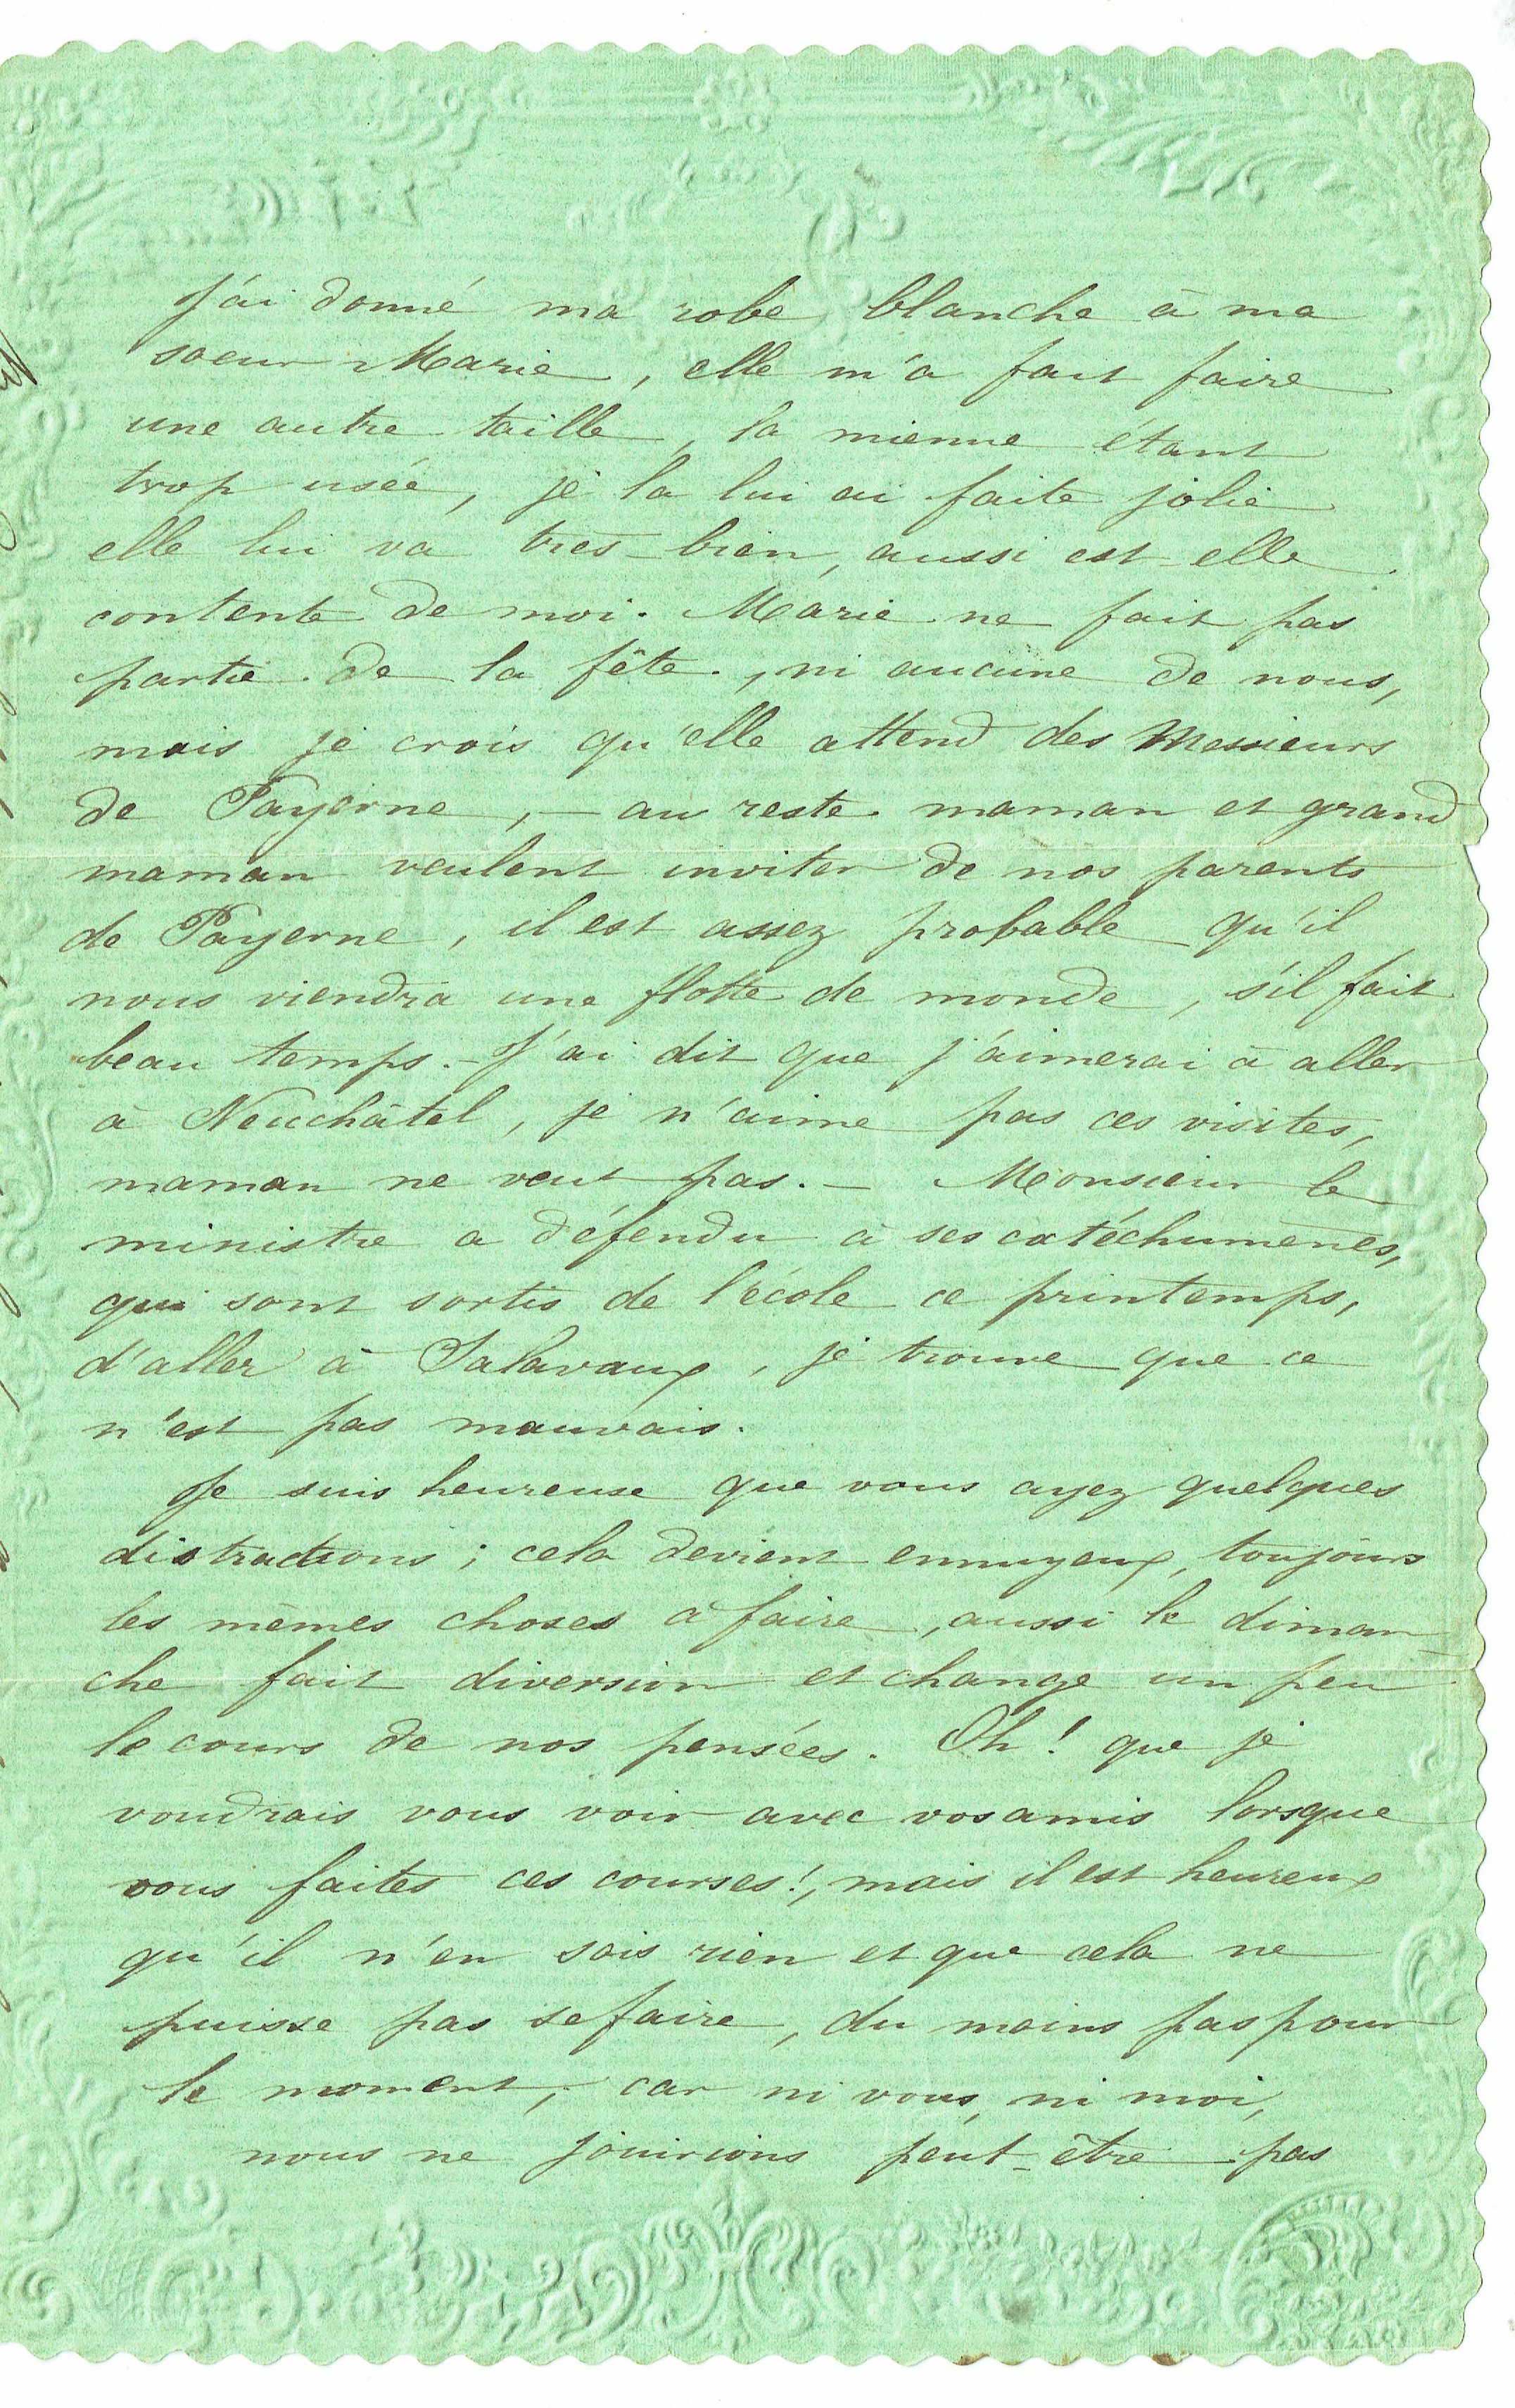 J'ai donné ma robe blanche à ma
soeur Marie, elle m'a fait faire
une autre taille, la mienne étant
trop usée, je la lui ai faite jolie
elle lui va très-bien, aussi est-elle
contente de moi. Marie ne fait pas
partie de la fête, ni aucune de nous,
mais je crois qu'elle attend des Messieurs
de Payerne, — au reste maman et grand
maman veulent inviter de nos parents
de Payerne, il est assez probable qu'il
nous viendra une flotte de monde, s'il fait
beau temps. - J'ai dit que j'aimerai à aller
à Neuchâtel, je n'aime pas ces visites,
maman ne veut pas. — Monsieur le
ministre a défendu à ses catéchumènes,
qui sont sortis de l'école ce printemps,
d'aller à Salavaux, je trouve que ce
n'est pas mauvais.
Je suis heureuse que vous ayez quelques
distractions ; cela devient ennuyeux, toujours
les mêmes choses à faire, aussi le diman-
che fait diversion et change un peu
le cours de nos pensées. Oh ! que je
voudrais vous voir avec vos amis lorsque
vous faites ces courses !, mais il est heureux
qu'il n'en sois rien et que cela ne
puisse pas se faire, du moins pas pour
le moment, car ni vous, ni moi,
nous ne jouirions peut-être pas